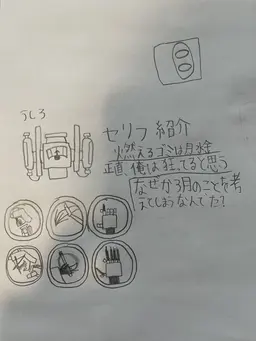 うしろ
セリフ 紹介
燃えるゴミは月水金
正直 俺は狂ってると思う
なぜか3月のことを考
えてしまうなんでだ?